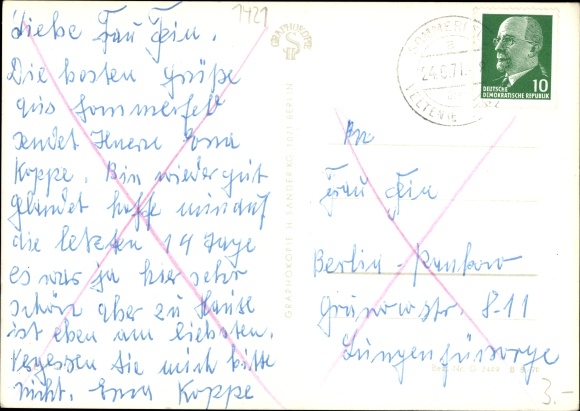 1421
Liebe Frau Fein.
Die besten Grüße
aus Sommerfeld
sendet Ihnen Erna
Koppe. Bin wieder gut
gelandet hoffe nun auf
die letzten 14 Tage
es war ja hier sehr
schön aber zu Hause
ist eben am liebsten.
Vergessen Sie mich bitte
nicht. Erna Koppe
GRAPHOKOPIE
GRAPHOKOPIE H. SANDER KG, 1071 BERLIN
SOMMERFELD
24.6.71
VELTEN
DEUTSCHE
DEMOKRATISCHE REPUBLIK
10
An
Frau Fein
Berlin-Pankow
Grunowstr. 8-11
Lungenfürsorge
3.-